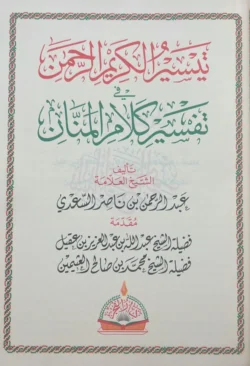 تيسير الكريم الرحمن
في
تفسير كلام المنان
تأليف
الشيخ العلامة
عبد الرحمن بن ناصر السعدي
مقدمة
فضيلة الشيخ عبد الله بن عبد العزيز بن عقيل
فضيلة الشيخ محمد بن صالح العثيمين